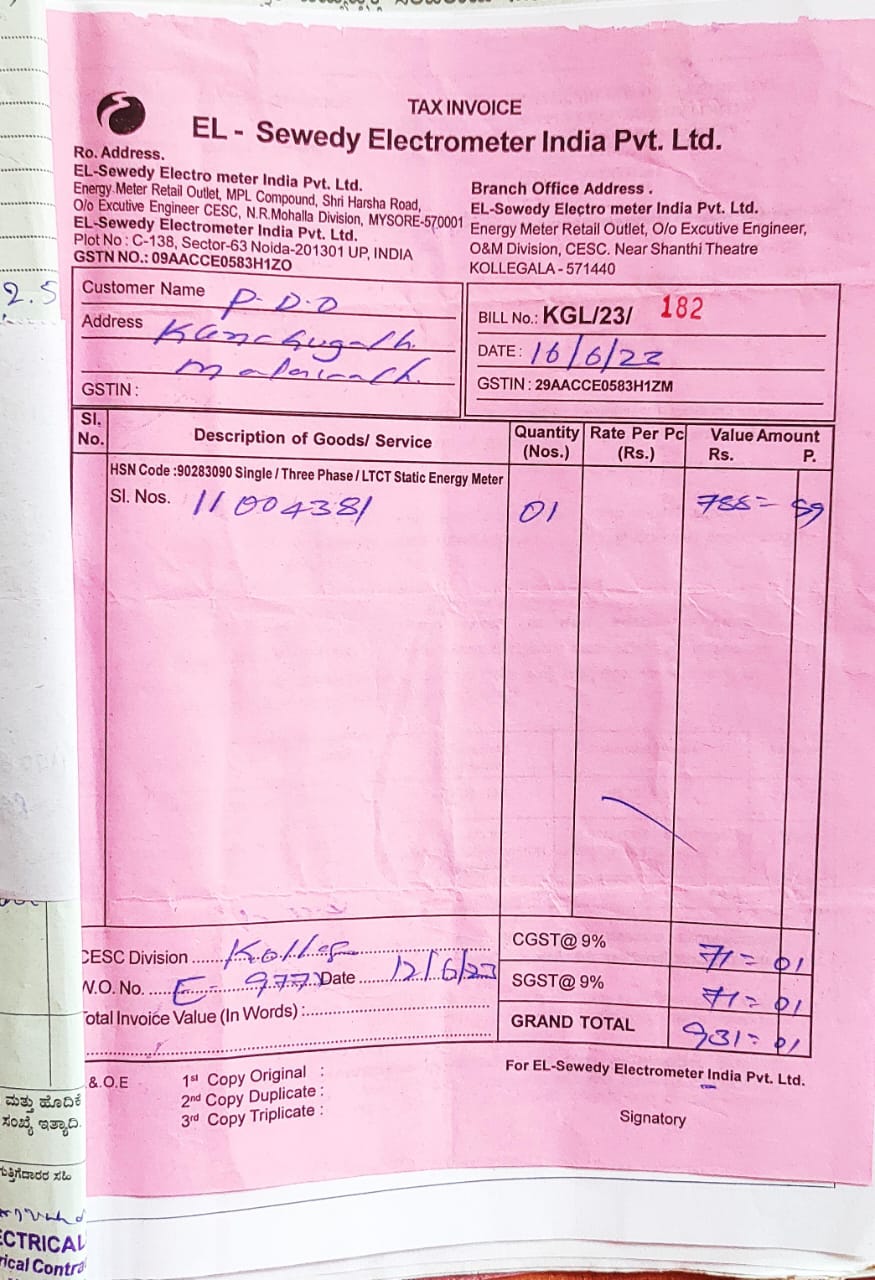 TAX INVOICE
EL - Sewedy Electrometer India Pvt. Ltd.
Ro. Address.
EL-Sewedy Electro meter India Pvt. Ltd.
Energy Meter Retail Outlet, MPL Compound, Shri Harsha Road,
O/o Excutive Engineer CESC, N.R.Mohalla Division, MYSORE-570001
EL-Sewedy Electrometer India Pvt. Ltd.
Plot No : C-138, Sector-63 Noida-201301 UP, INDIA
GSTN NO.: 09AACCE0583H1ZO
Branch Office Address .
EL-Sewedy Electro meter India Pvt. Ltd.
Energy Meter Retail Outlet, O/o Excutive Engineer,
O&M Division, CESC. Near Shanthi Theatre
KOLLEGALA - 571440
2.5
Customer Name P.D.O
Address
GSTIN :
BILL No.: KGL/23/ 182
DATE : 16/6/23
GSTIN : 29AACCE0583H1ZM
Sl. No. Description of Goods/ Service Quantity (Nos.) Rate Per Pc (Rs.) Value Amount Rs. P.
HSN Code :90283090 Single / Three Phase / LTCT Static Energy Meter
Sl. Nos. 11004381 01 788= 59
CESC Division
W.O. No. E- 977 Date 12/6/23
Total Invoice Value (In Words) :
CGST@ 9% 71= 01
SGST@ 9% 71= 01
GRAND TOTAL 931= 01
&.O.E
1st Copy Original :
2nd Copy Duplicate :
3rd Copy Triplicate :
For EL-Sewedy Electrometer India Pvt. Ltd.
Signatory
ಮತ್ತು ಹೊದಿಕೆ
ಸಂಖ್ಯೆ ಇತ್ಯಾದಿ.
ಗುತ್ತಿಗೆದಾರರ ಸಹಿ
ECTRICAL
rical Contra